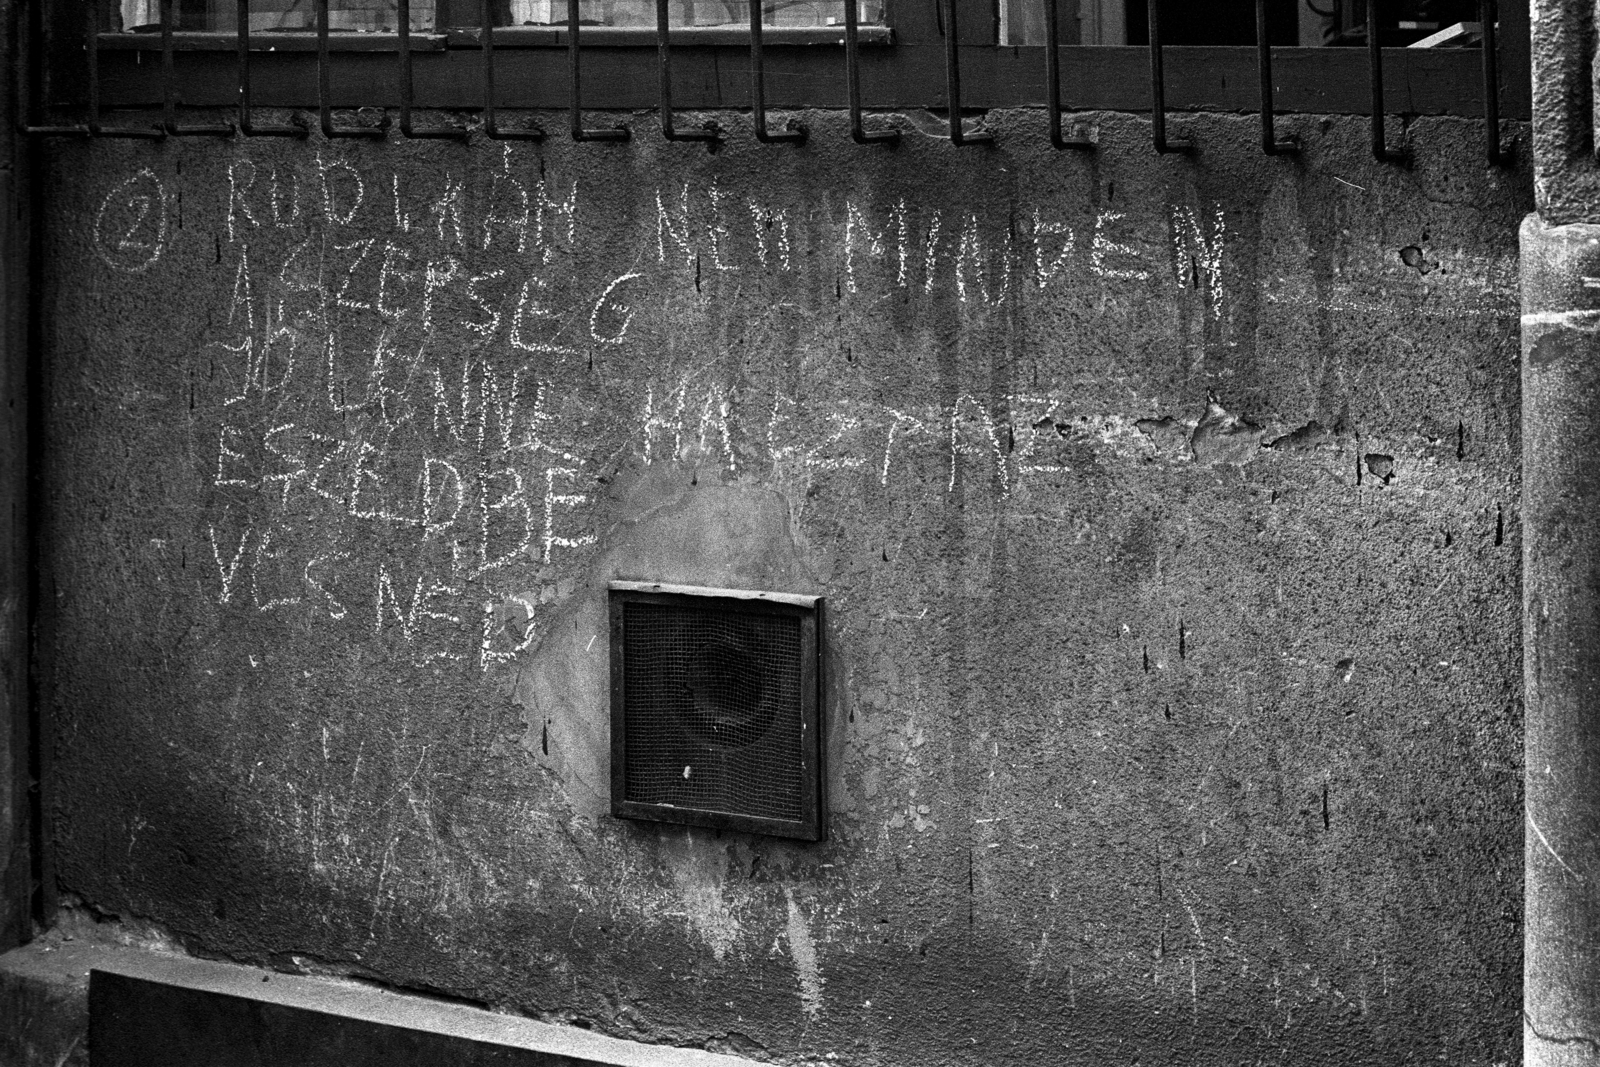 ② RUDIKÁM NEM MINDEN
A SZEPSEG
JO LENNE HA EZT AZ
ESZEDBE
VESNED